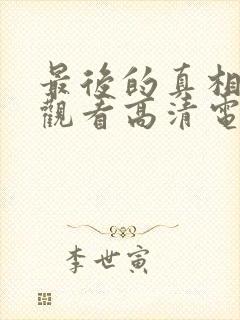 最後的真相
觀看高清電
李世寅